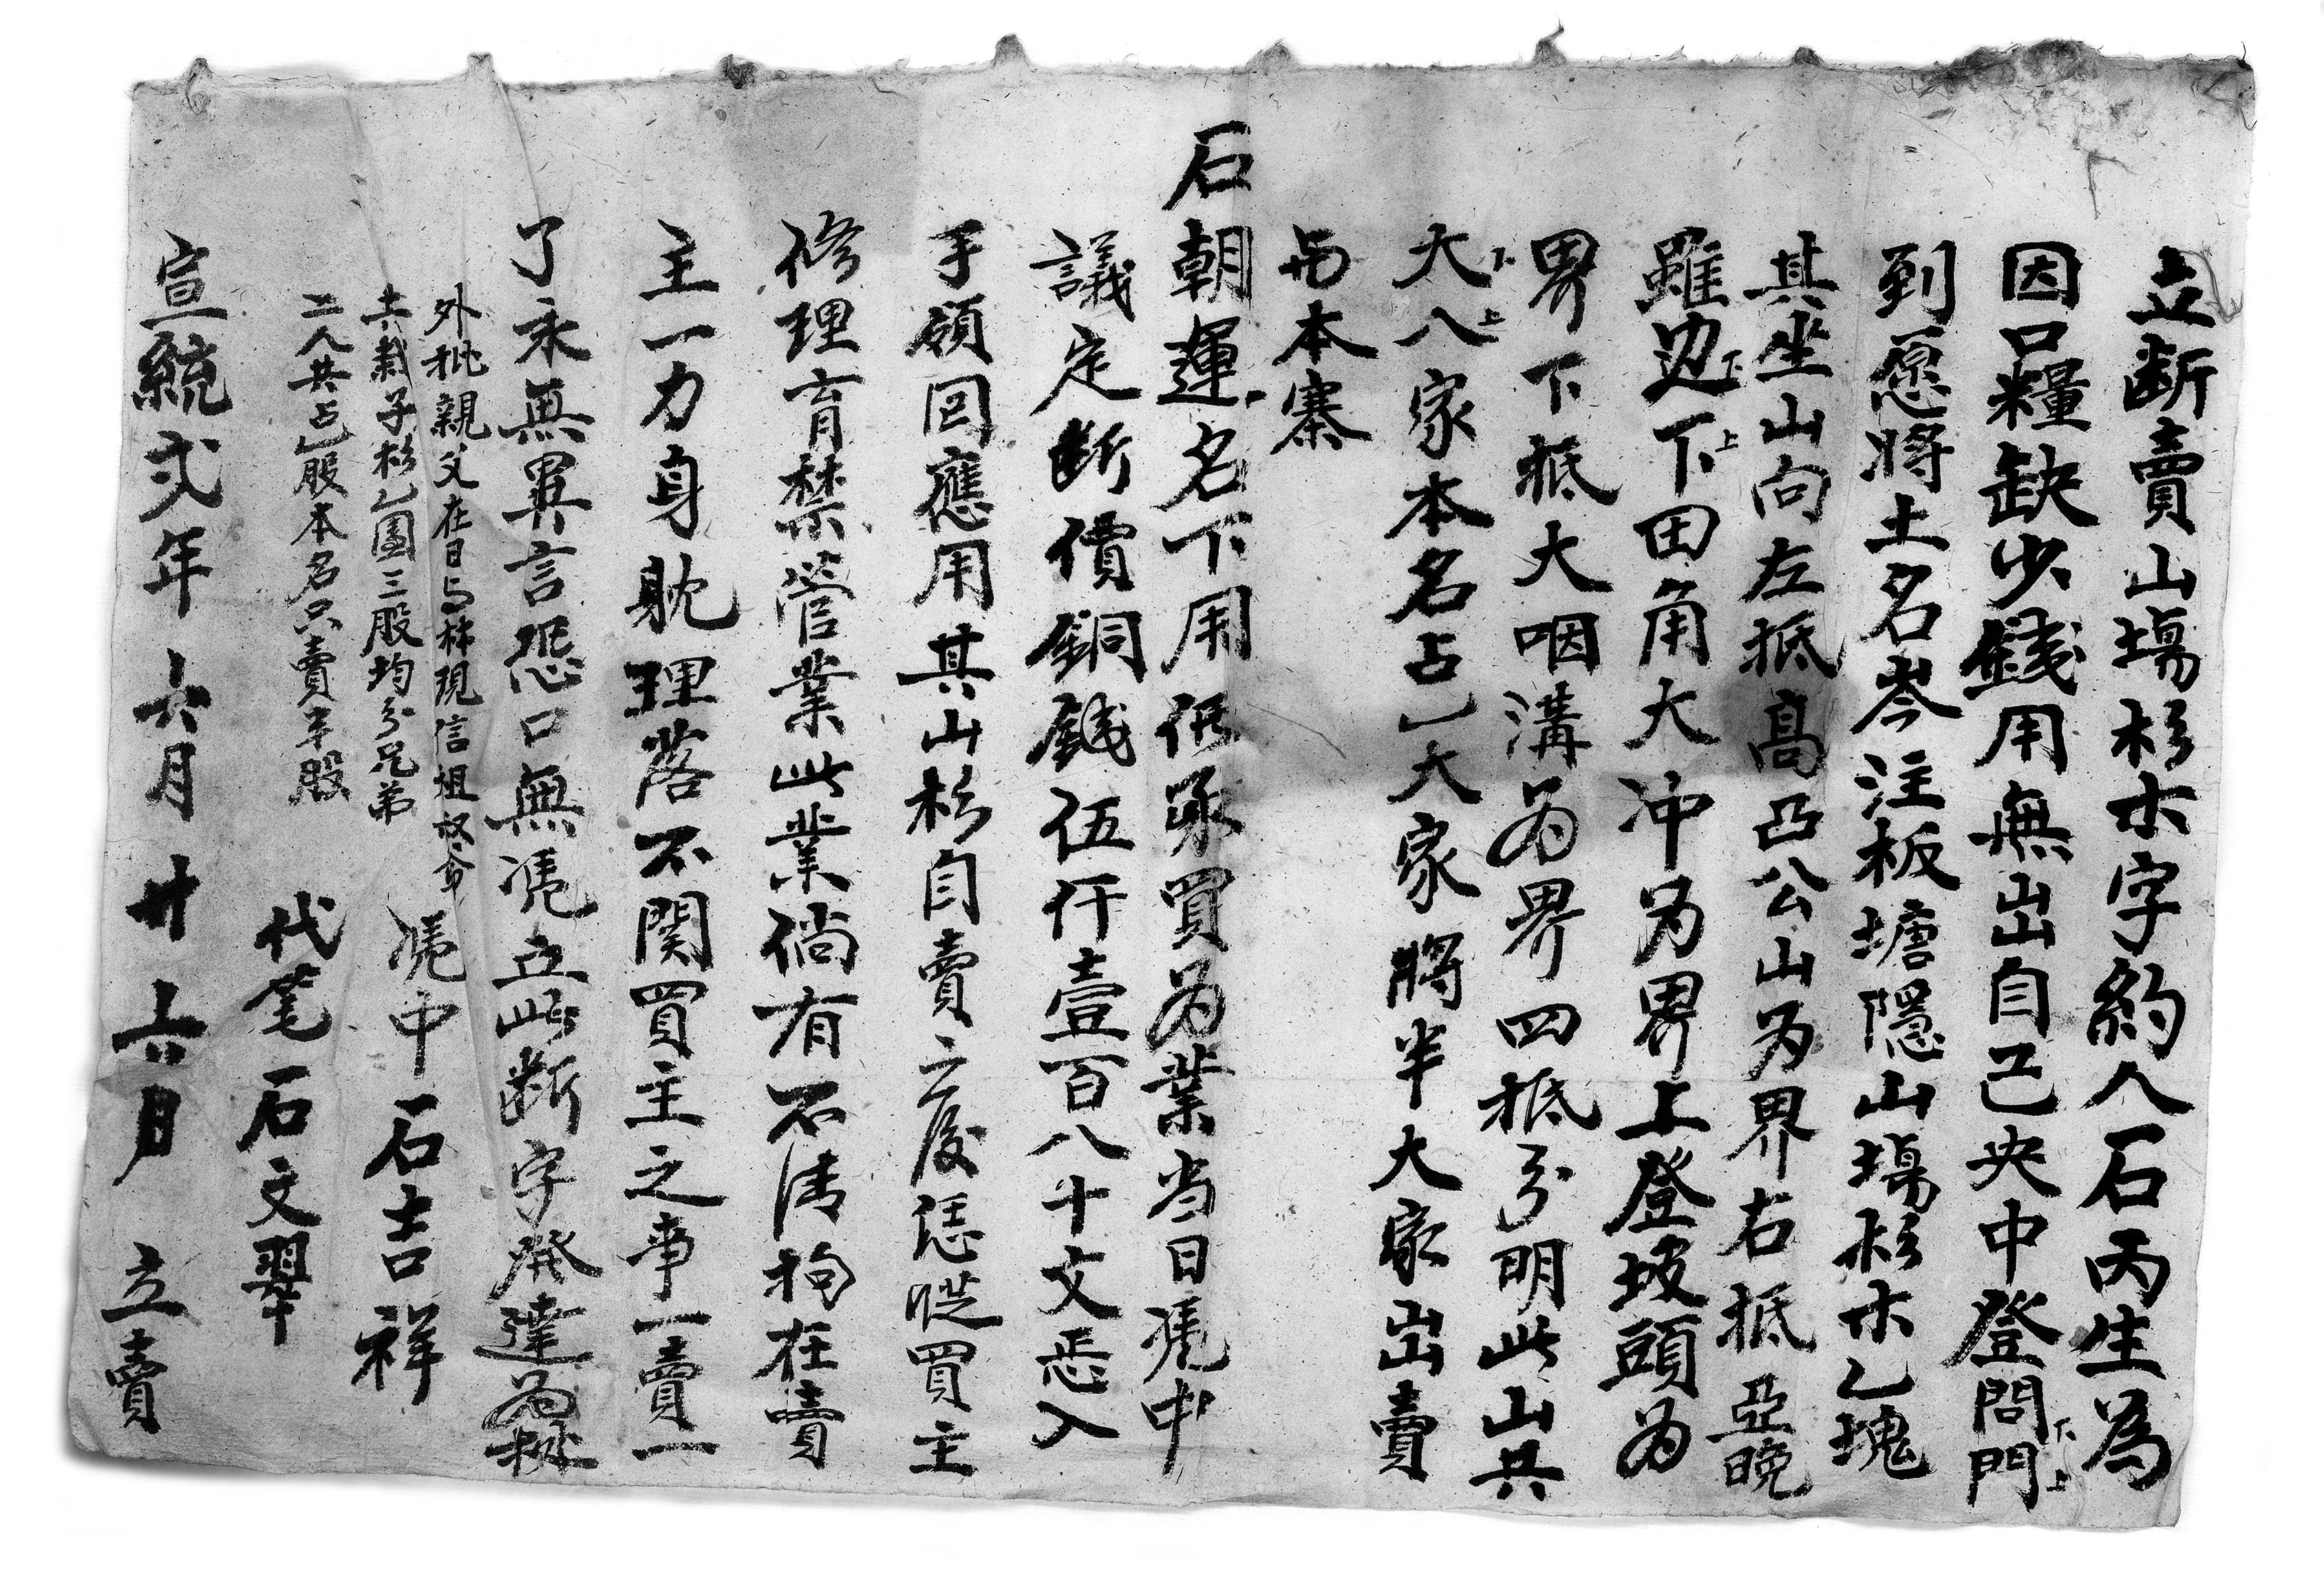 立断賣山塲杉木字約人石丙生為
因口糧缺少錢用無出自己央中登問門
下上
到愿將土名岑注板塘隱山塲杉木乙塊
其坐山向左抵高凸公山为界右抵亞晚
雖边下田角大冲为界上登坡頭为
下上
界下抵大咽溝为界四抵分明此山共
大八家本名占乙大家將半大家出賣
下上
与本寨
石朝運名下用伍承買为業当日凴中
議定断價銅錢伍仟壹百八十文恁入
手領回應用其山杉自賣之后恁從買主
修理育禁營業此業倘有不清拘在賣
主一力身躭理落不関買主之事一賣一
了永無異言恐口無凴立此断字發達为
外批親父在日与林現信祖
土栽子杉乙園三股均分兄弟
二人共占乙股本名只賣半股
凴中石吉祥
代笔石文翠
宣統弍年六月廿六日立賣